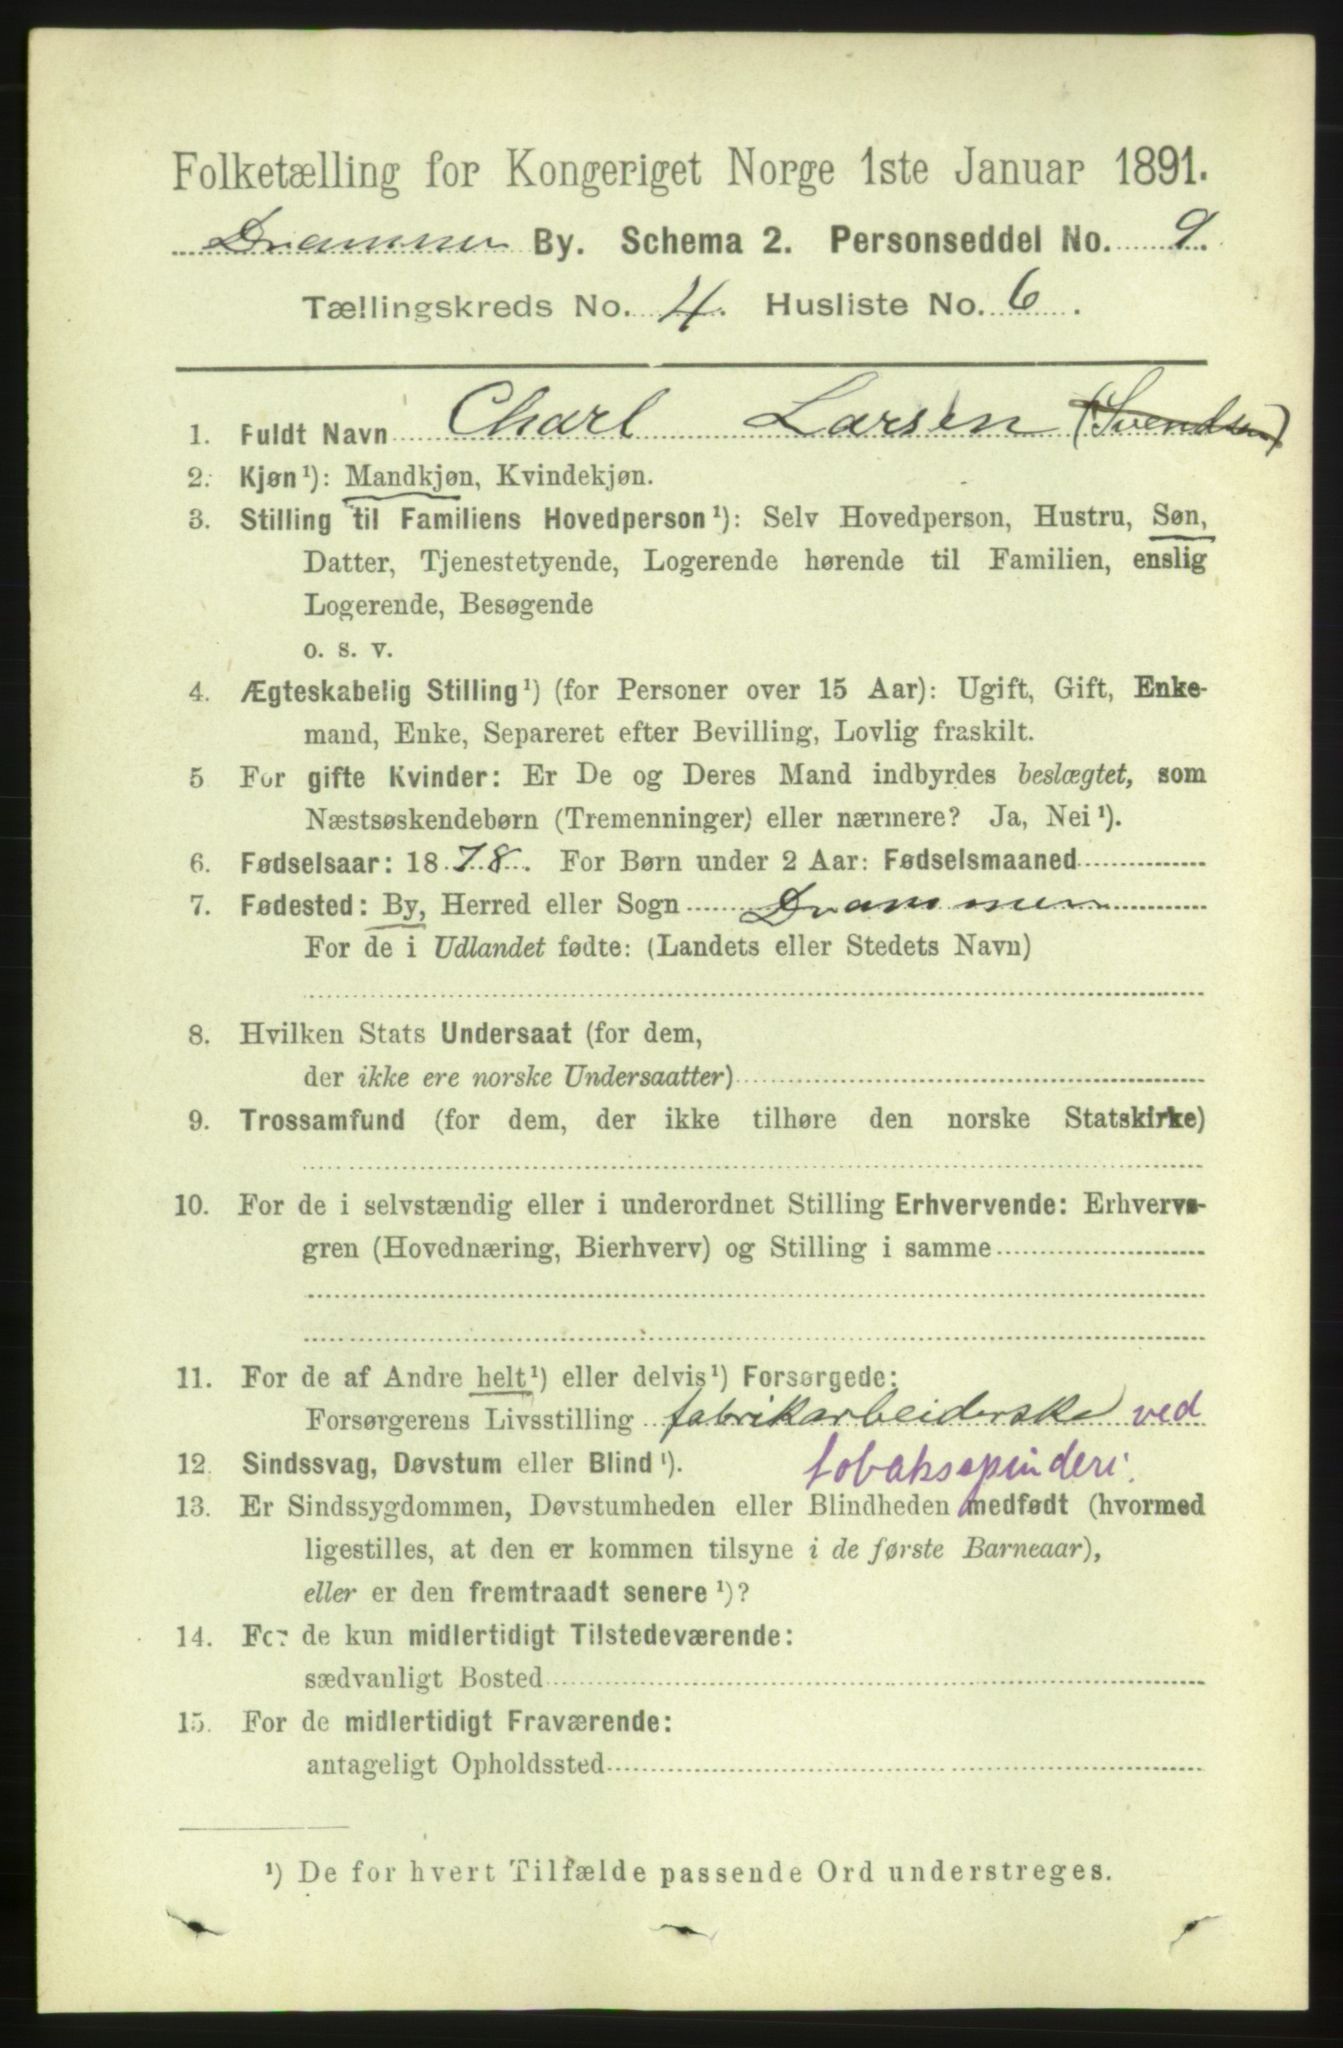 Folketælling for Kongeriget Norge 1ste Januar 1891.
Drammen By. Schema 2. Personseddel No. 9.
Tællingskreds No. 4. Husliste No. 6.
1. Fuldt Navn Charl Larsen (Svendsen)
2. Kjøn¹): Mandkjøn, Kvindekjøn.
3. Stilling til Familiens Hovedperson¹): Selv Hovedperson, Hustru, Søn,
Datter, Tjenestetyende, Logerende hørende til Familien, enslig
Logerende, Besøgende
o. s. v.
4. Ægteskabelig Stilling¹) (for Personer over 15 Aar): Ugift, Gift, Enke-
mand, Enke, Separeret efter Bevilling, Lovlig fraskilt.
5 For gifte Kvinder: Er De og Deres Mand indbyrdes beslægtet, som
Næstsøskendebørn (Tremenninger) eller nærmere? Ja, Nei¹).
6. Fødselsaar: 1878. For Børn under 2 Aar: Fødselsmaaned
7. Fødested: By, Herred eller Sogn Drammen
For de i Udlandet fødte: (Landets eller Stedets Navn)
8. Hvilken Stats Undersaat (for dem,
der ikke ere norske Undersaatter)
9. Trossamfund (for dem, der ikke tilhøre den norske Statskirke)
10. For de i selvstændig eller i underordnet Stilling Erhvervende: Erhvervs-
gren (Hovednæring, Bierhverv) og Stilling i samme
11. For de af Andre helt¹) eller delvis¹) Forsørgede:
Forsørgerens Livsstilling fabrikarbeiderske ved
12. Sindssvag, Døvstum eller Blind¹). tobakspinderi.
13. Er Sindssygdommen, Døvstumheden eller Blindheden medfødt (hvormed
ligestilles, at den er kommen tilsyne i de første Barneaar),
eller er den fremtraadt senere¹)?
14. For de kun midlertidigt Tilstedeværende:
sædvanligt Bosted
15. For de midlertidigt Fraværende:
antageligt Opholdssted
¹) De for hvert Tilfælde passende Ord understreges.